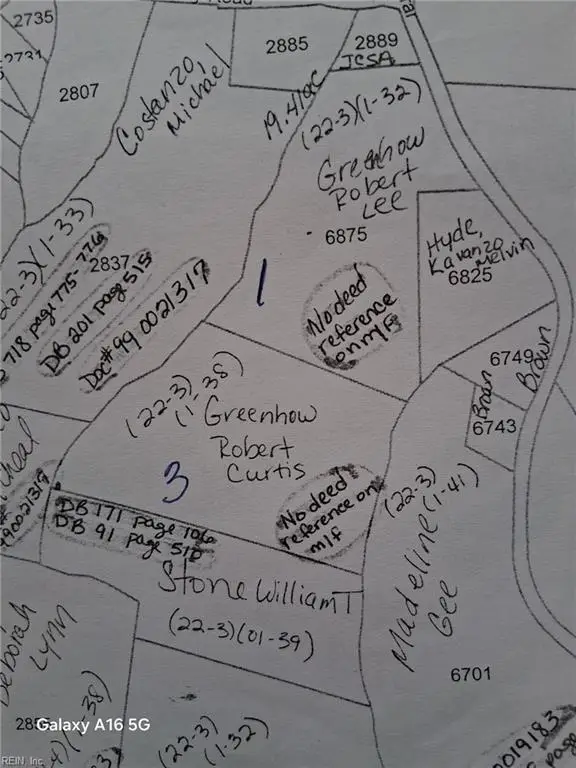 Road
2735
2731
2807
2885
2889
JCSA
Costanzo,
Michael
19.41ac
(22-3)(1-32)
Greenhow
Robert
Lee
6875
Hyde,
Kavanzo
Melvin
6825
22-3)(1-33)
2837
718 page 775-776
DB 201 page 515
Doc# 990021317
1
No deed
reference
on m/f
6749
Brown
Brown
6743
(22-3)
(1-38)
Greenhow
Robert
Curtis
3
No deed
reference on
m/f
cheal
990021317
DB 171 page 706
DB 91 page 510
(22-3)
(1-41)
Madeline
Gee
Stone William T
(22-3)(01-39)
Deborah
Lynn
6701
(22-3)
(1-32)
0019183
page
Galaxy A16 5G
REIN, Inc.